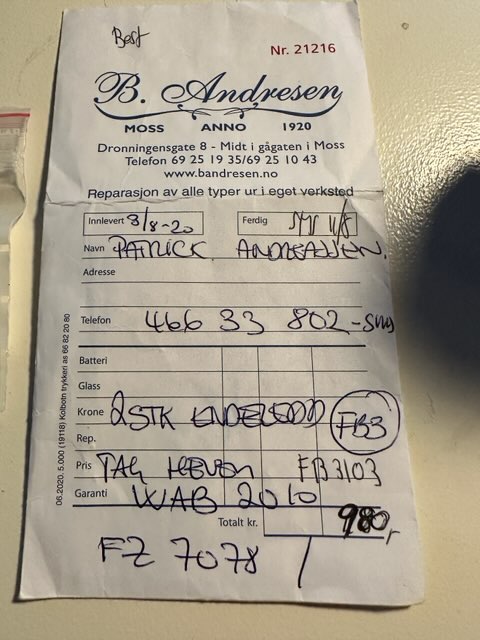 Best
Nr. 21216
B. Andresen
MOSS ANNO 1920
Dronningensgate 8 - Midt i gågaten i Moss
Telefon 69 25 19 35/69 25 10 43
www.bandresen.no
Reparasjon av alle typer ur i eget verksted
Innlevert 3/8-20 Ferdig 11/8
Navn PATRICK ANDREASSEN.
Adresse
Telefon 466 33 802 - SMS
Batteri
Glass
Krone 2STK ENDELEDD FB3
Rep.
Pris TAG HEUER FB3103
Garanti WAB 2010
Totalt kr. 980,-
FZ 7078
06.2020. 5.000 (19118) Kolbotn trykkeri as 66 82 20 80